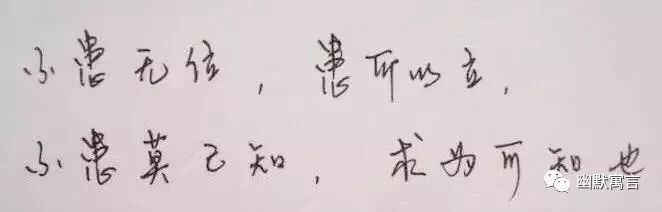 不患无位，患所以立，
不患莫己知，求为可知也
幽默寓言